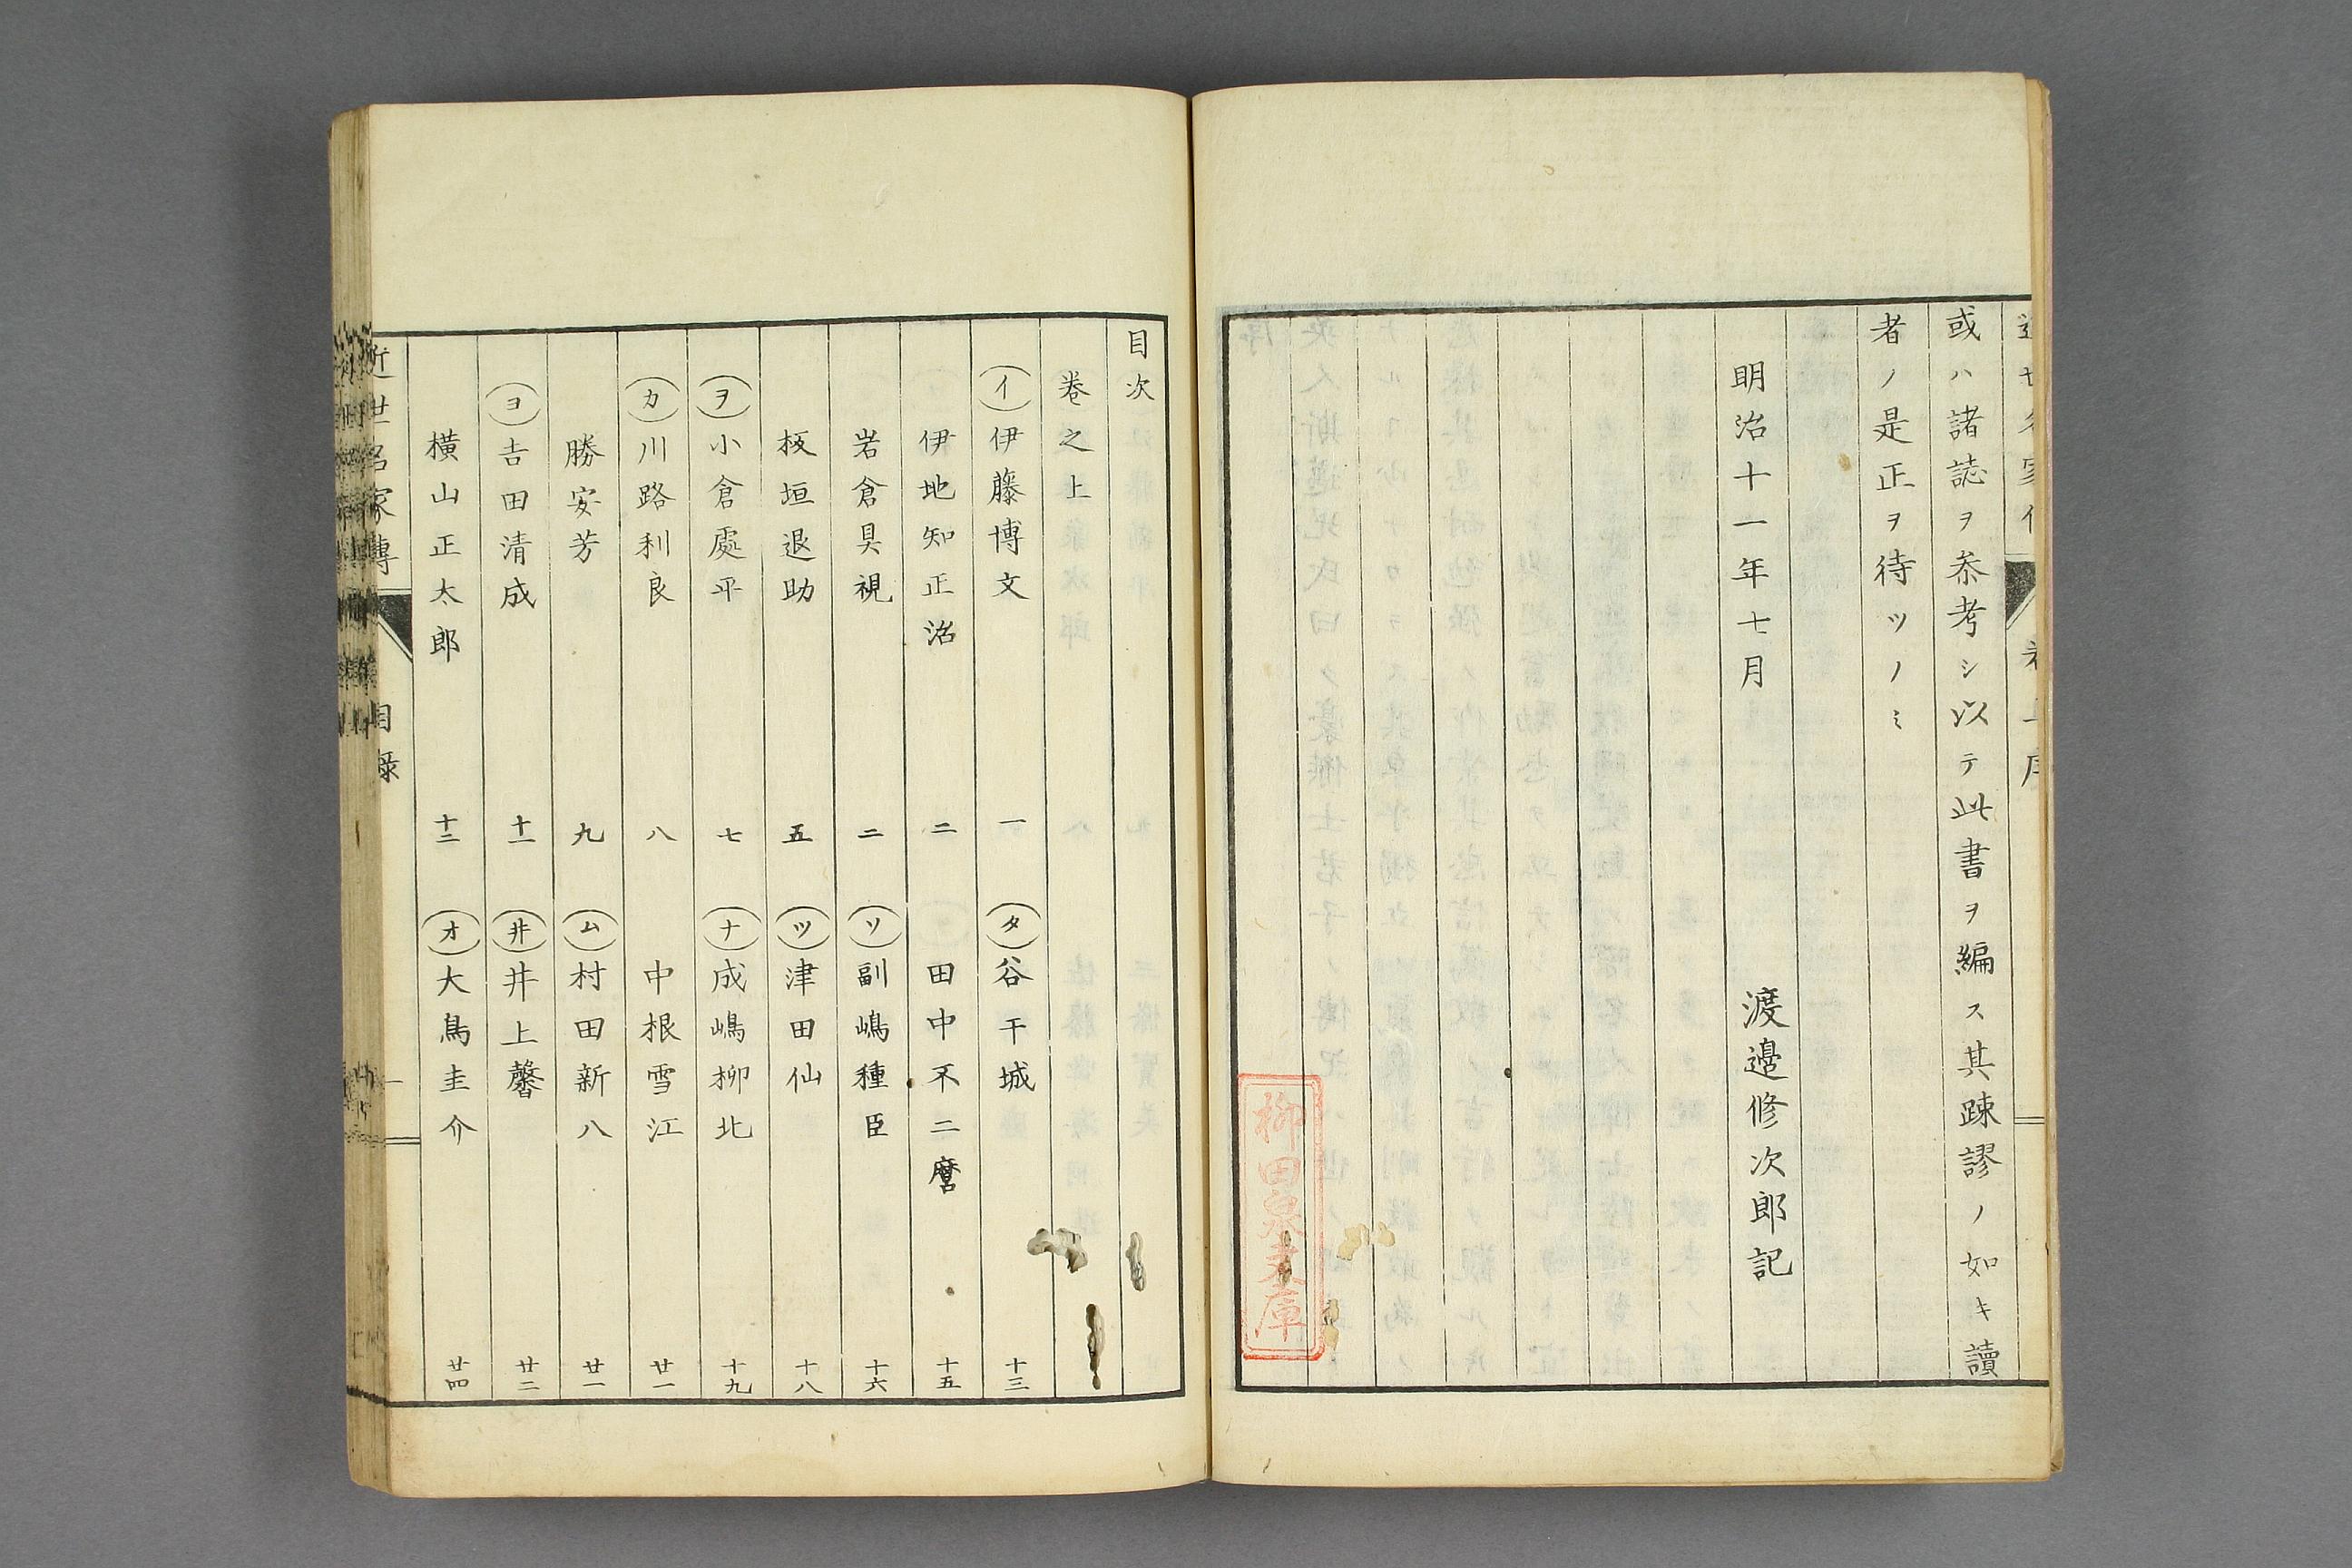 或ハ諸誌ヲ叅考シ以テ此書ヲ編ス其踈謬ノ如キ讀
者ノ是正ヲ待ツノミ
明治十一年七月
渡邉修次郎記
柳田泉文庫
目次
巻之上
(イ)伊藤博文 一
(タ)谷干城 十三
伊地知正治 二
田中不二麿 十五
岩倉具視 二
(ソ)副嶋種臣 十六
板垣退助 五
(ツ)津田仙 十八
(ヲ)小倉處平 七
(ナ)成嶋柳北 十九
(カ)川路利良 八
中根雪江 廿一
勝安芳 九
(ム)村田新八 廿一
(ヨ)吉田清成 十一
(井)井上馨 廿二
橫山正太郎 十二
(オ)大鳥圭介 廿四
近世名家傳 目録 一